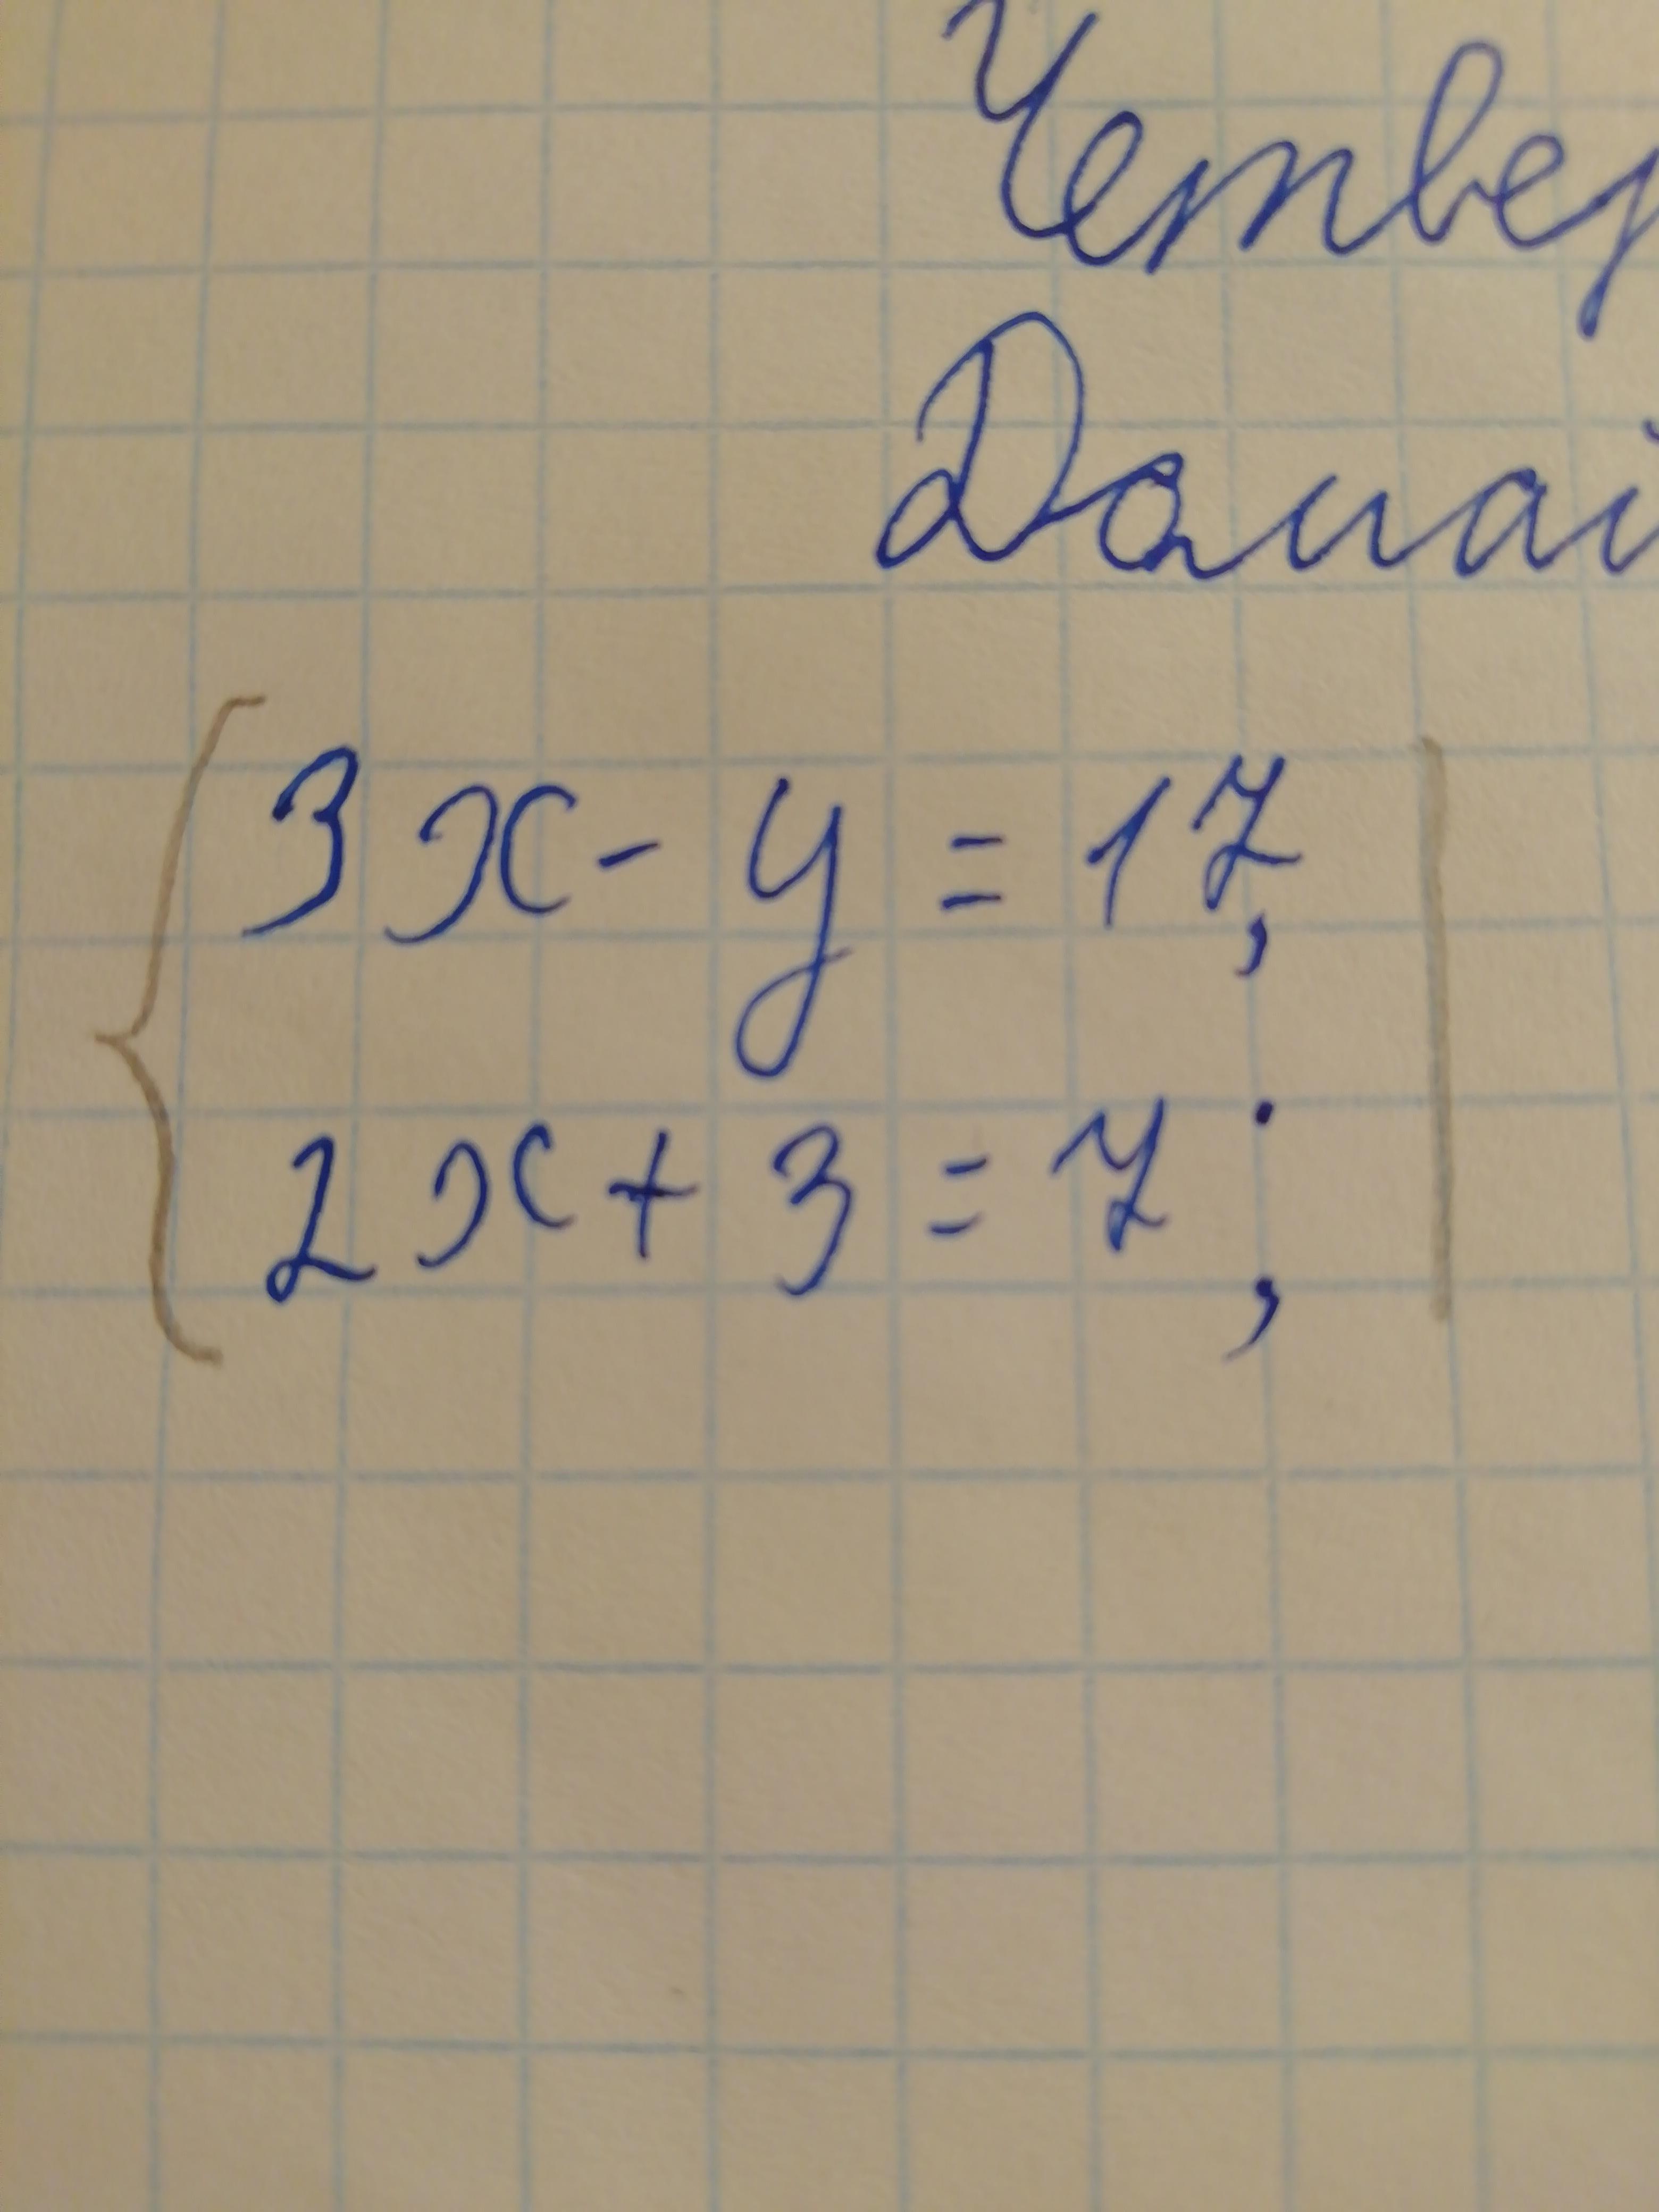 Четвер
Домаш
3x - y = 17,
2x + 3 = 7;